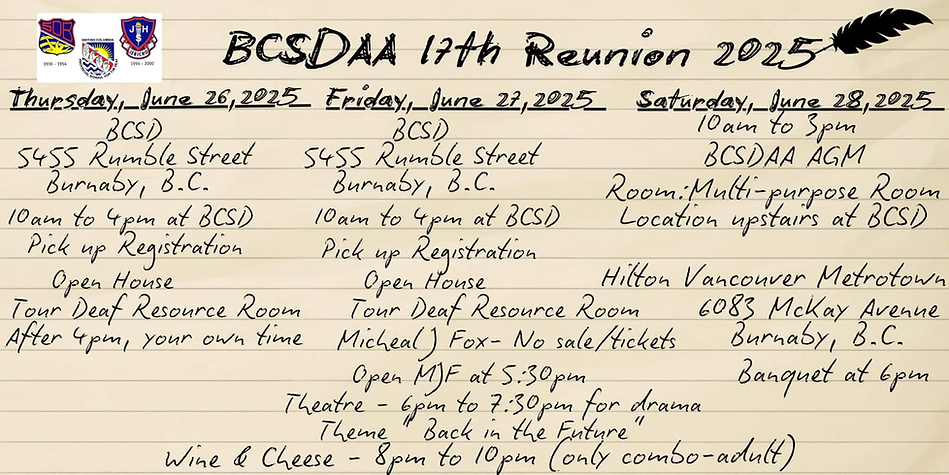 BCSDAA 17th Reunion 2025
SOR
1936 - 1954
BRITISH COLUMBIA
J H
JERICHO
1954 - 2000
Thursday, June 26, 2025
BCSD
5455 Rumble Street
Burnaby, B.C.
10am to 4pm at BCSD
Pick up Registration
Open House
Tour Deaf Resource Room
After 4pm, your own time
Friday, June 27, 2025
BCSD
5455 Rumble Street
Burnaby, B.C.
10am to 4pm at BCSD
Pick up Registration
Open House
Tour Deaf Resource Room
Micheal J Fox- No sale/tickets
Open MJF at 5:30pm
Theatre - 6pm to 7:30pm for drama
Theme " Back in the Future"
Wine & Cheese - 8pm to 10pm (only combo-adult)
Saturday, June 28, 2025
10am to 3pm
BCSDAA AGM
Room:Multi-purpose Room
Location upstairs at BCSD
Hilton Vancouver Metrotown
6083 McKay Avenue
Burnaby, B.C.
Banquet at 6pm